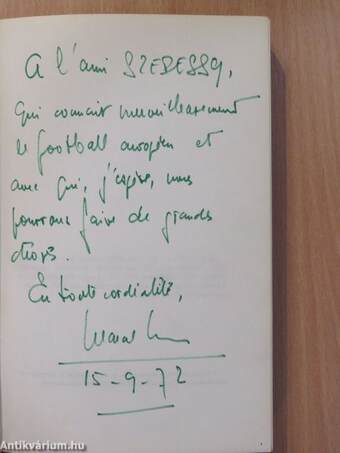 A l'ami SZEBESSY,
qui connait merveilleusement
le football européen et
avec qui, j'espère, nous
pourrons faire de grandes
choses.
En toute cordialité,
15-9-72
Antikvárium.hu